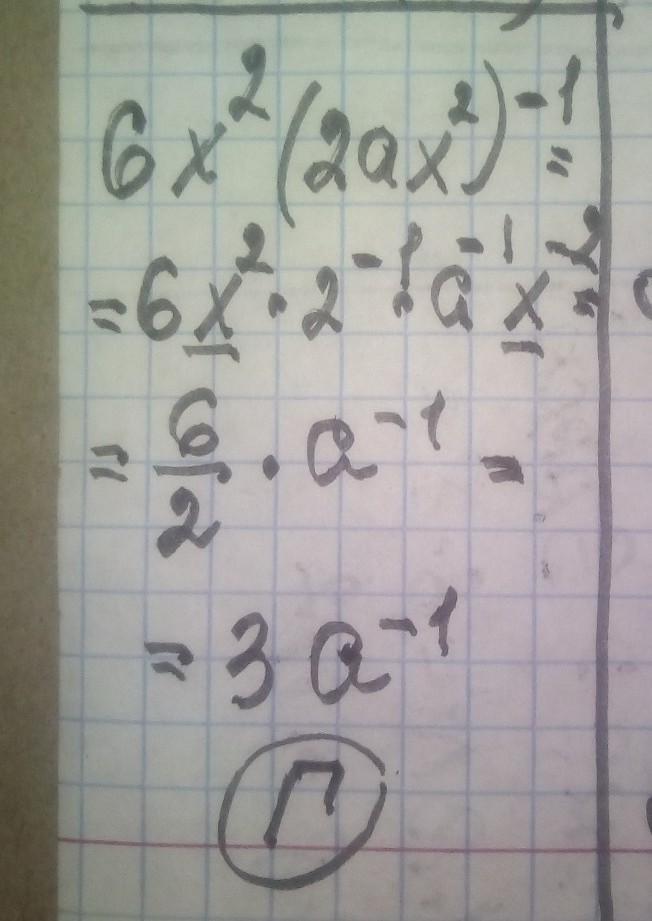 6x²(2ax²)⁻¹=
=6x²·2⁻¹·a⁻¹x⁻²=
=6/2·a⁻¹=
=3a⁻¹
Г